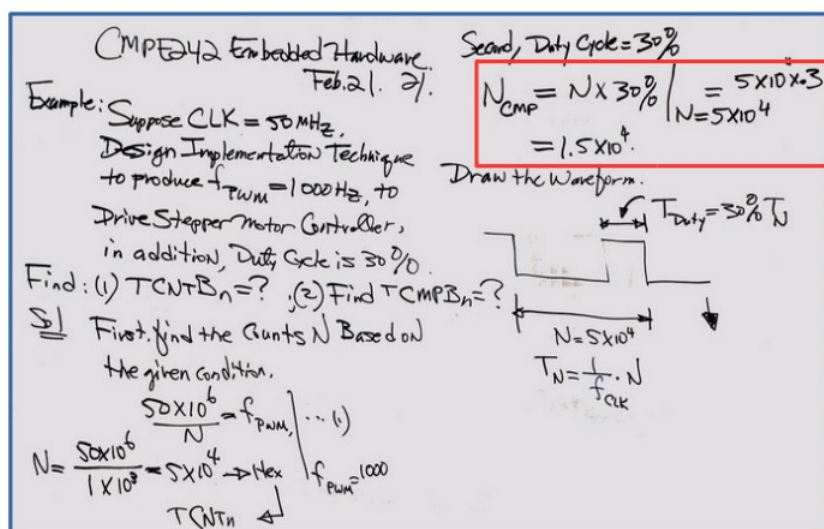 CMPE242 Embedded Hardware.
Feb. 21. 21.
Example: Suppose CLK = 50 MHz,
Design Implementation Technique
to produce f_PWM = 1000 Hz, to
Drive Stepper Motor Controller,
in addition, Duty Cycle is 30%.
Find: (1) TCNTBn=? ,(2) Find TCMPBn=?
Sol First, find the Counts N Based on
the given condition.
50×10^6/N = f_PWM, ...(1)
N = 50×10^6/1×10^3 = 5×10^4 → Hex | f_PWM=1000
TCNTn
Second, Duty Cycle = 30%
N_CMP = N×30% | N=5×10^4 = 5×10^4×.3
= 1.5×10^4.
Draw the Waveform.
T_Duty = 30% T_N
N=5×10^4
T_N = 1/f_CLK · N